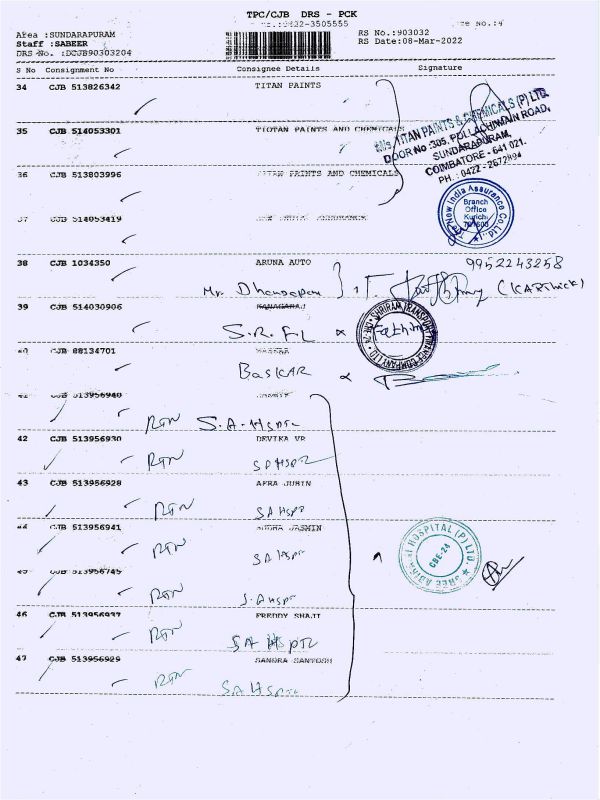 TPC/CJB DRS - PCK
:0432-3505555
No.:4
Area :SUNDARAPURAM
RS No.:903032
Staff :SABEER
RS Date:08-Mar-2022
DRS No. :DCJB90303204
S No Consignment No Consignee Details Signature
34 CJB 513826342 TITAN PAINTS
M/s. TITAN PAINTS & CHEMICALS (P) LTD.
DOOR No :305, POLLACHI MAIN ROAD,
SUNDARAPURAM,
COIMBATORE - 641 021.
PH.: 0422 - 2672894
35 CJB 514053301 TIOTAN PAINTS AND CHEMICALS
36 CJB 513803996 TITAN PAINTS AND CHEMICALS
The New India Assurance Co. Ltd.
Branch
Office
Kurichi
37 CJB 514053419 NEW INDIA ASSURANCE
38 CJB 1034350 ARUNA AUTO
9952243258
Mr. (KARTHICK)
39 CJB 514030906 KANAGARAJ
S.R.F.L
SHRIRAM TRANSPORT FINANCE COMPANY LTD. CBE-24
Fathima
40 CJB 88134701
BASKAR
41 CJB 513956940
RTN S.A-HSPTL
42 CJB 513956930 DEVIKA VR
RTN SAHSPTL
43 CJB 513956928 AFRA JUBIN
RTN SAHSPT
44 CJB 513956941 JASMIN
RTN SAHSPT
SREE ABIRAMI HOSPITAL (P) LTD.
CBE-24
45 CJB 513956745
RTN S.AHSPT
46 CJB 513956937 FREDDY SHAJI
RTN SA HSPTL
47 CJB 513956929 SANDRA SANTOSH
RTN SAHSPTL